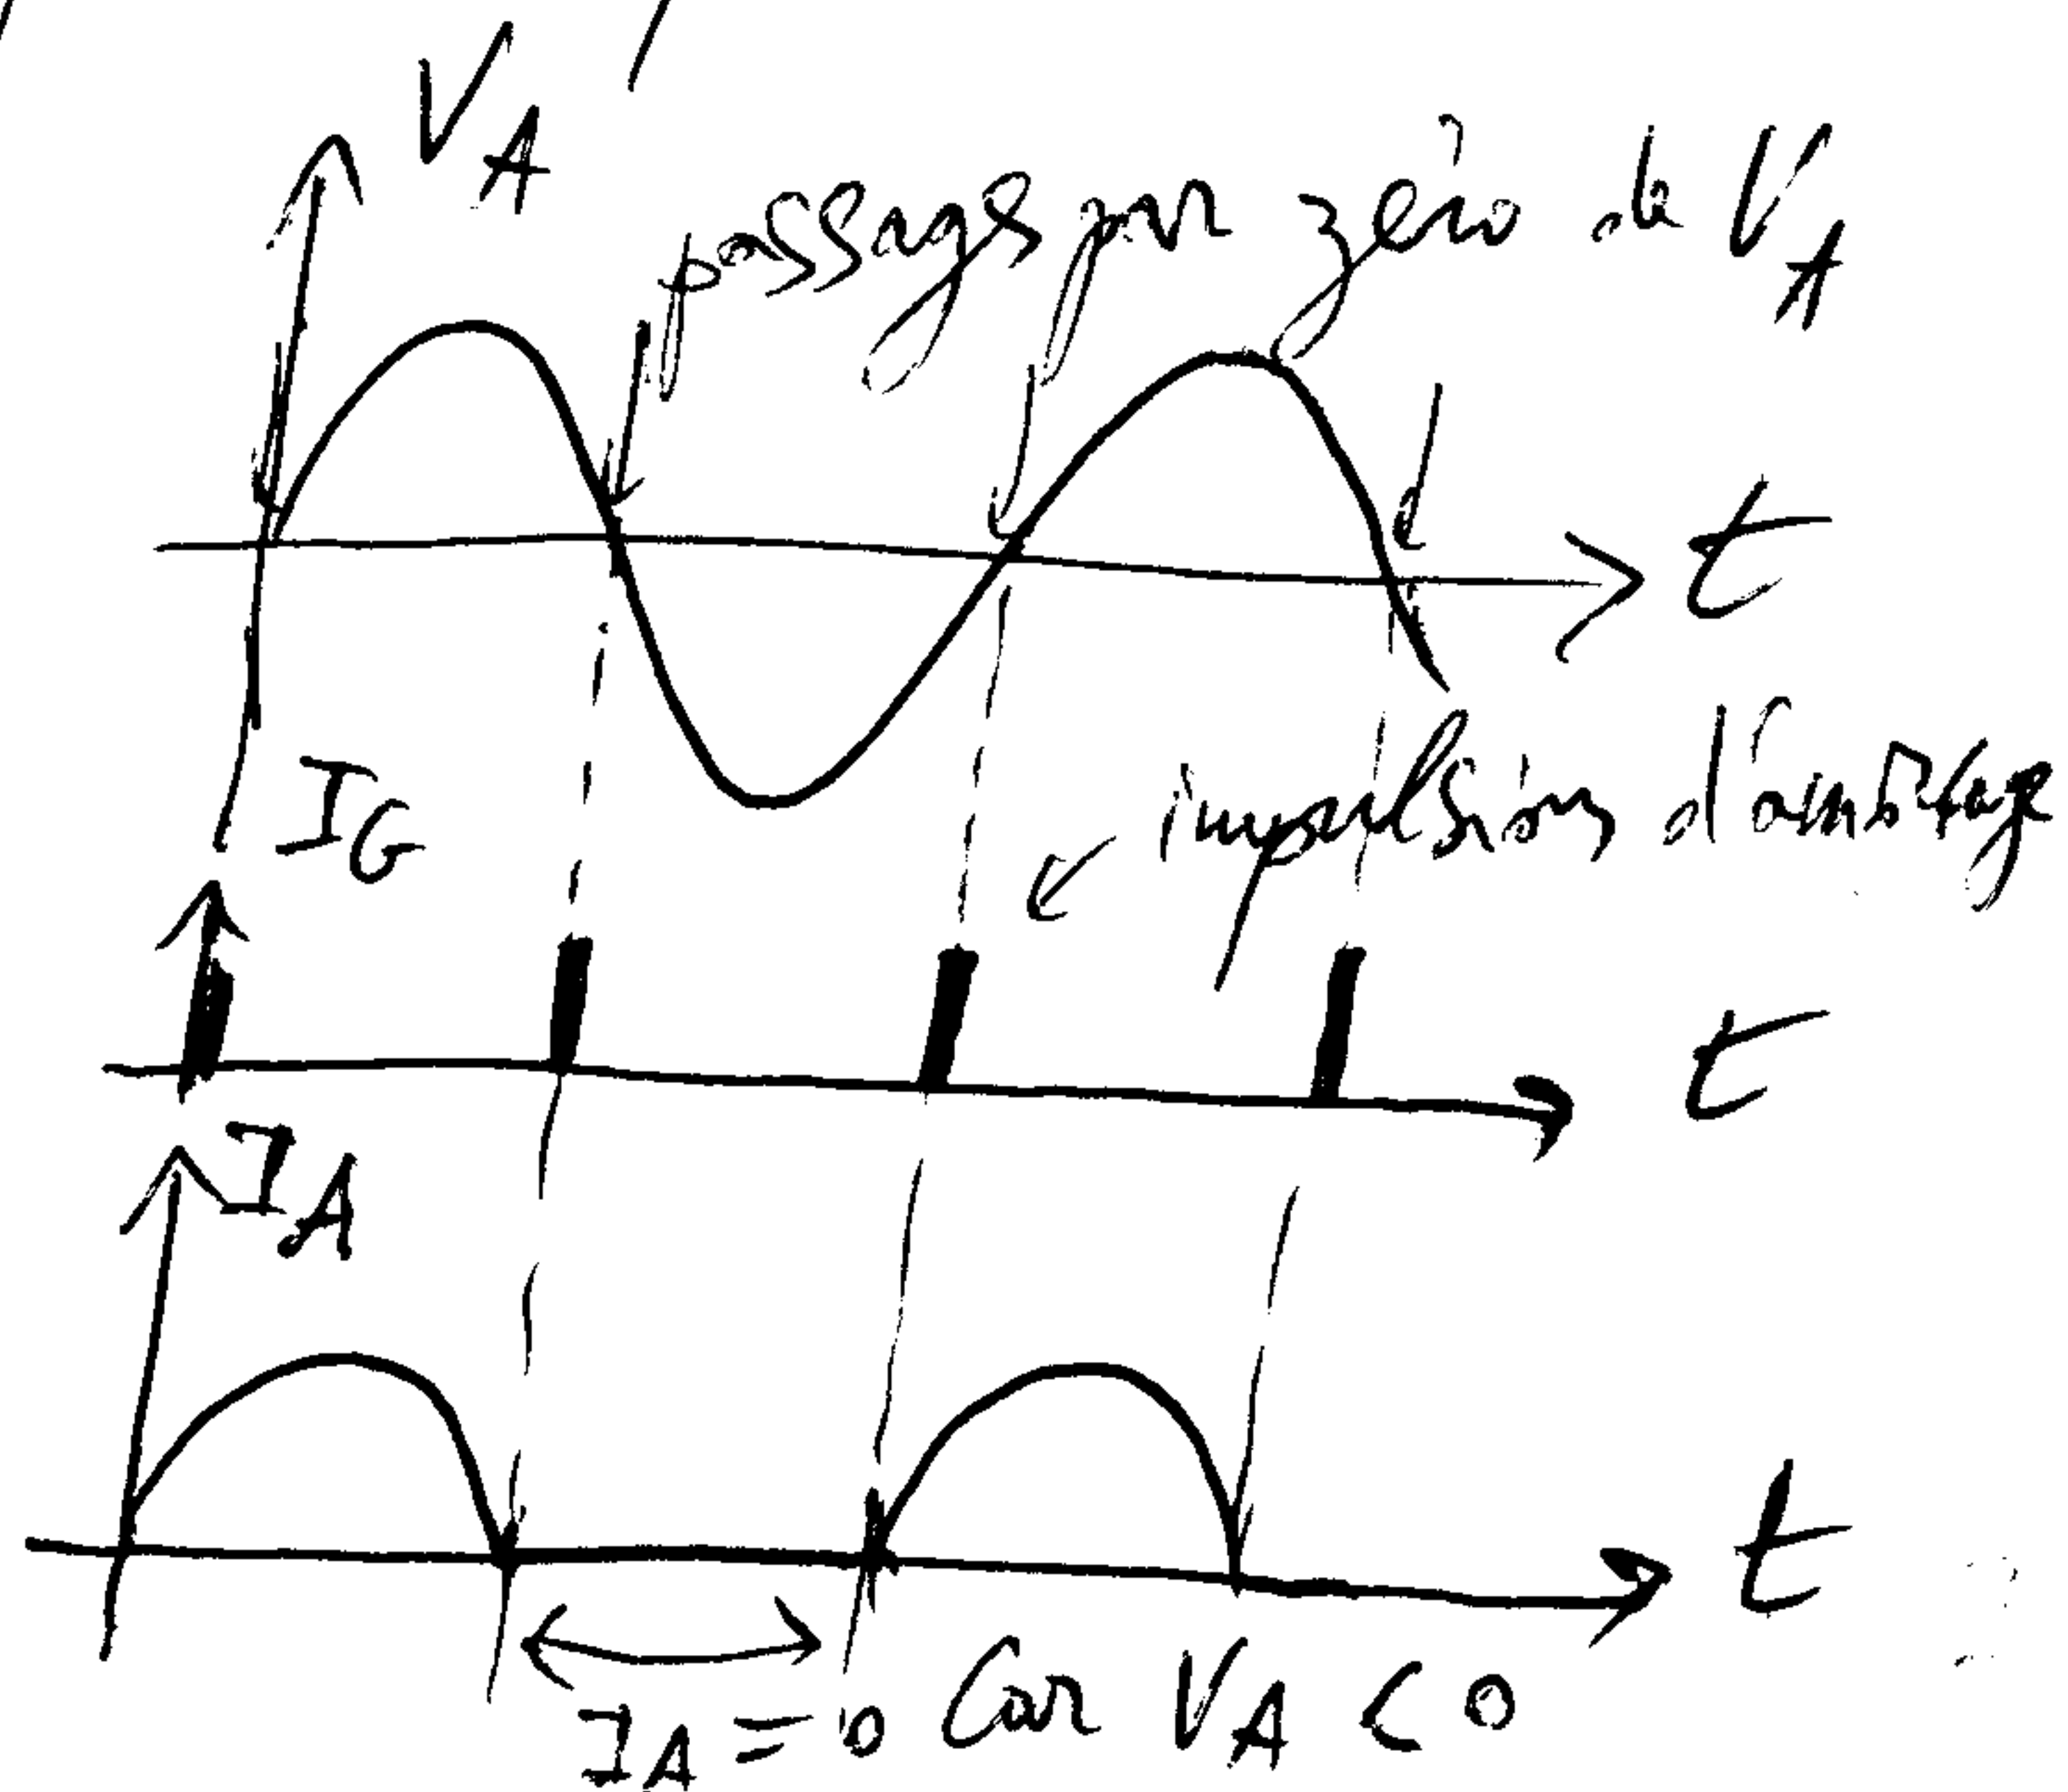 V_A
passage par zéro de V_A
t
I_G
impulsion d'amorçage
t
I_A
t
I_A = 0 Car V_A < 0